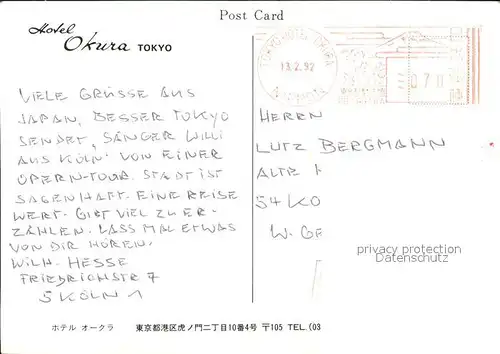 Post Card
Hotel
Okura TOKYO
TOKYO HOTEL OKURA
13.2.92
NIPPON
070
VIELE GRÜSSE AUS
JAPAN, BESSER TOKYO
SENDET, SÄNGER WILLI
AUS KÖLN. VON EINER
OPERN-TOUR. STADT IST
SAGENHAFT. EINE REISE
WERT. GIBT VIEL ZU ER-
ZÄHLEN. LASS MAL ETWAS
VON DIR HÖREN.
WILH. HESSE
FRIEDRICHSTR 7
5 KÖLN 1
HERRN
LUTZ BERGMANN
ALTE
54 KO
W. GE
privacy protection
Datenschutz
ホテル オークラ 東京都港区虎ノ門二丁目10番4号 〒105 TEL. (03